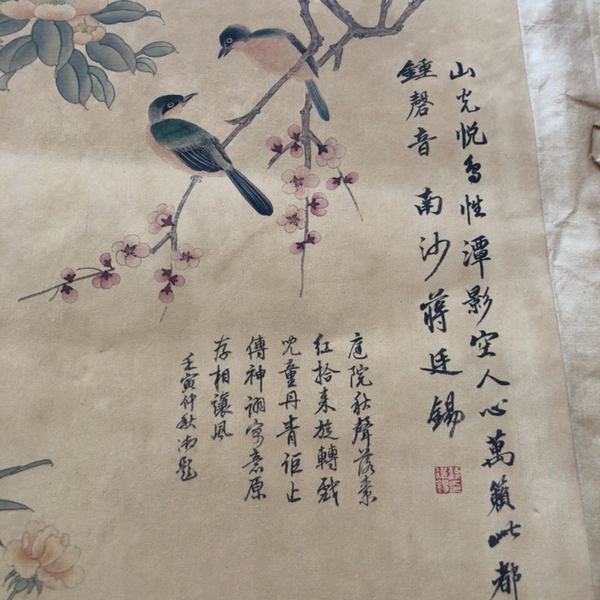 山光悦鸟性潭影空人心萬籟此都
鍾磬音 南沙蔣廷錫
庭院秋聲落棗
紅拾來旋轉戲
児童丹青詎止
傳神詡寓意原
存相讓風
壬寅仲秋御題